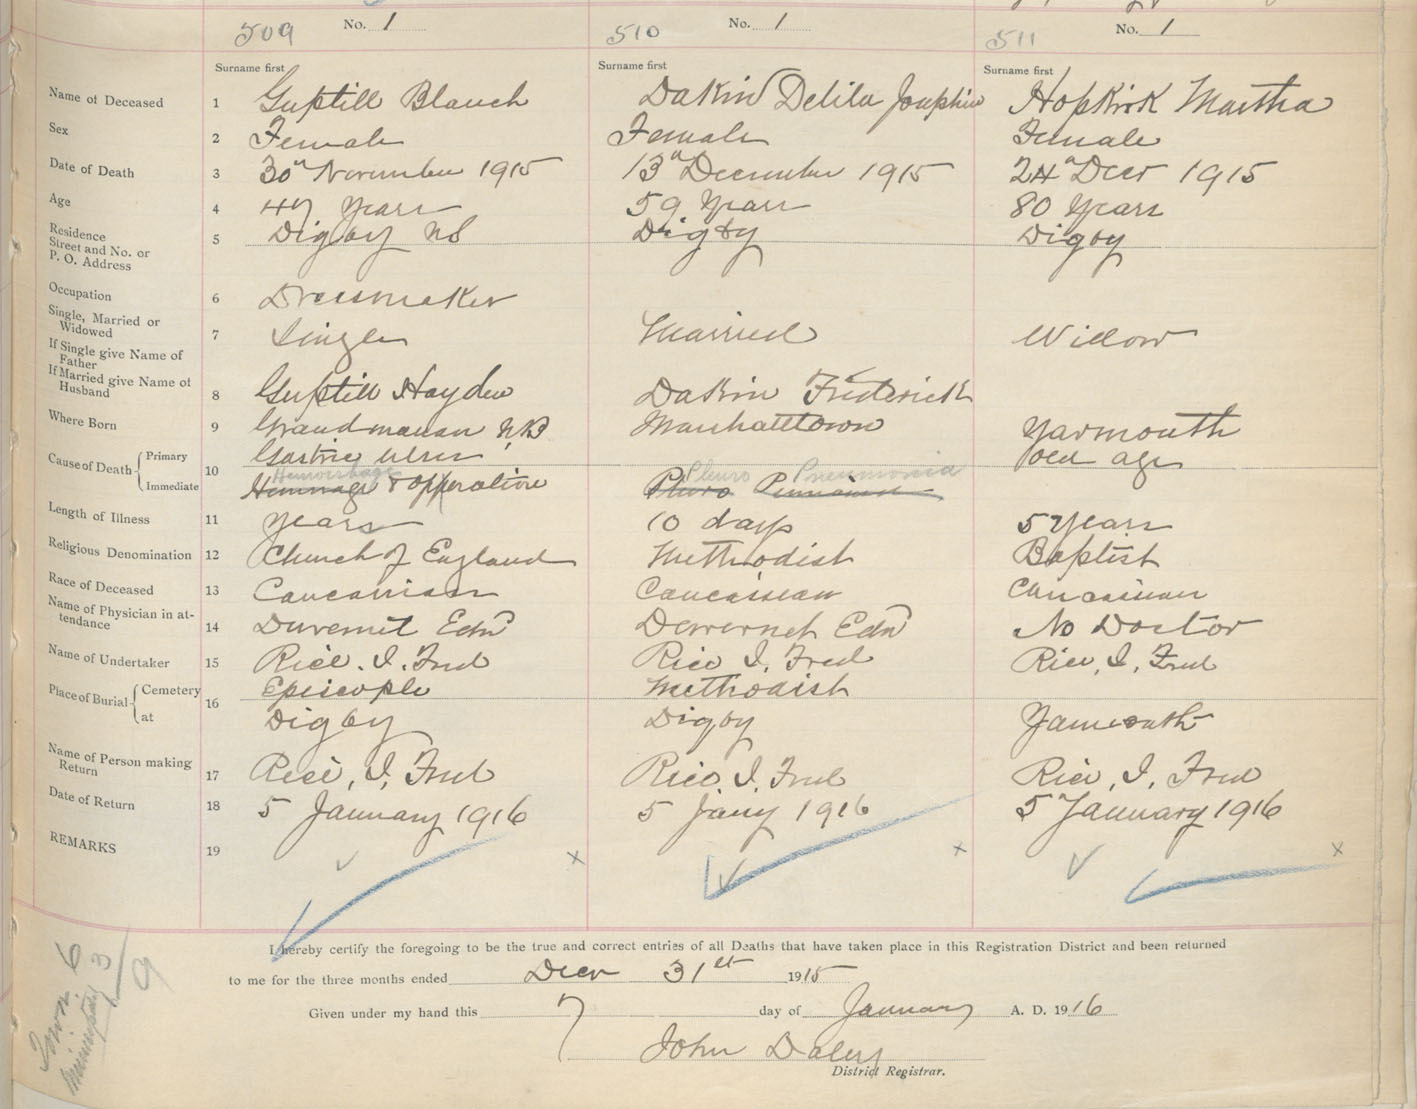 509 No. 1 510 No. 1 511 No. 1
Surname first Surname first Surname first
Name of Deceased 1 Guptill Blanch Dakin Delila Josephine Hopkirk Martha
Sex 2 Female Female Female
Date of Death 3 30th November 1915 13th December 1915 24th Decr 1915
Age 4 47 Years 59 Years 80 Years
Residence
Street and No. or 5 Digby NS Digby Digby
P. O. Address
Occupation 6 Dressmaker
Single, Married or
Widowed 7 Single Married Widow
If Single give Name of
Father
If Married give Name of
Husband 8 Guptill Hayden Dakin Frederick
Where Born 9 Grandmanan N.B Manhatttown Yarmouth
Cause of Death Primary Gastric ulcer old age
10 Hemorrhage Pleuro Pneumonia
Immediate Hemrage & opperative Pluro
Length of Illness 11 years 10 days 5 years
Religious Denomination 12 Church of England Methodist Baptist
Race of Deceased 13 Caucasian Caucassian Caucasian
Name of Physician in at-
tendance 14 Duvernet Edn Edn No Doctor
Name of Undertaker 15 Rice. I. Fred Rice I. Fred Rice, I, Fred
Place of Burial Cemetery Episcople Methodist
at 16 Digby Digby Yarmouth
Name of Person making
Return 17 Rice, I. Fred Rice, I. Fred Rice, I, Fred
Date of Return 18 5 January 1916 5 Jany 1916 5th January 1916
REMARKS 19 x x x
I hereby certify the foregoing to be the true and correct entries of all Deaths that have taken place in this Registration District and been returned
to me for the three months ended Decr 31st 1915
Given under my hand this 7 day of January A. D. 1916
John Daley
District Registrar.
Town 6
Municipality 3
9